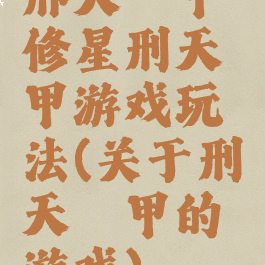 修星刑天
甲游戏玩
法(关于刑
天 甲的
游戏)